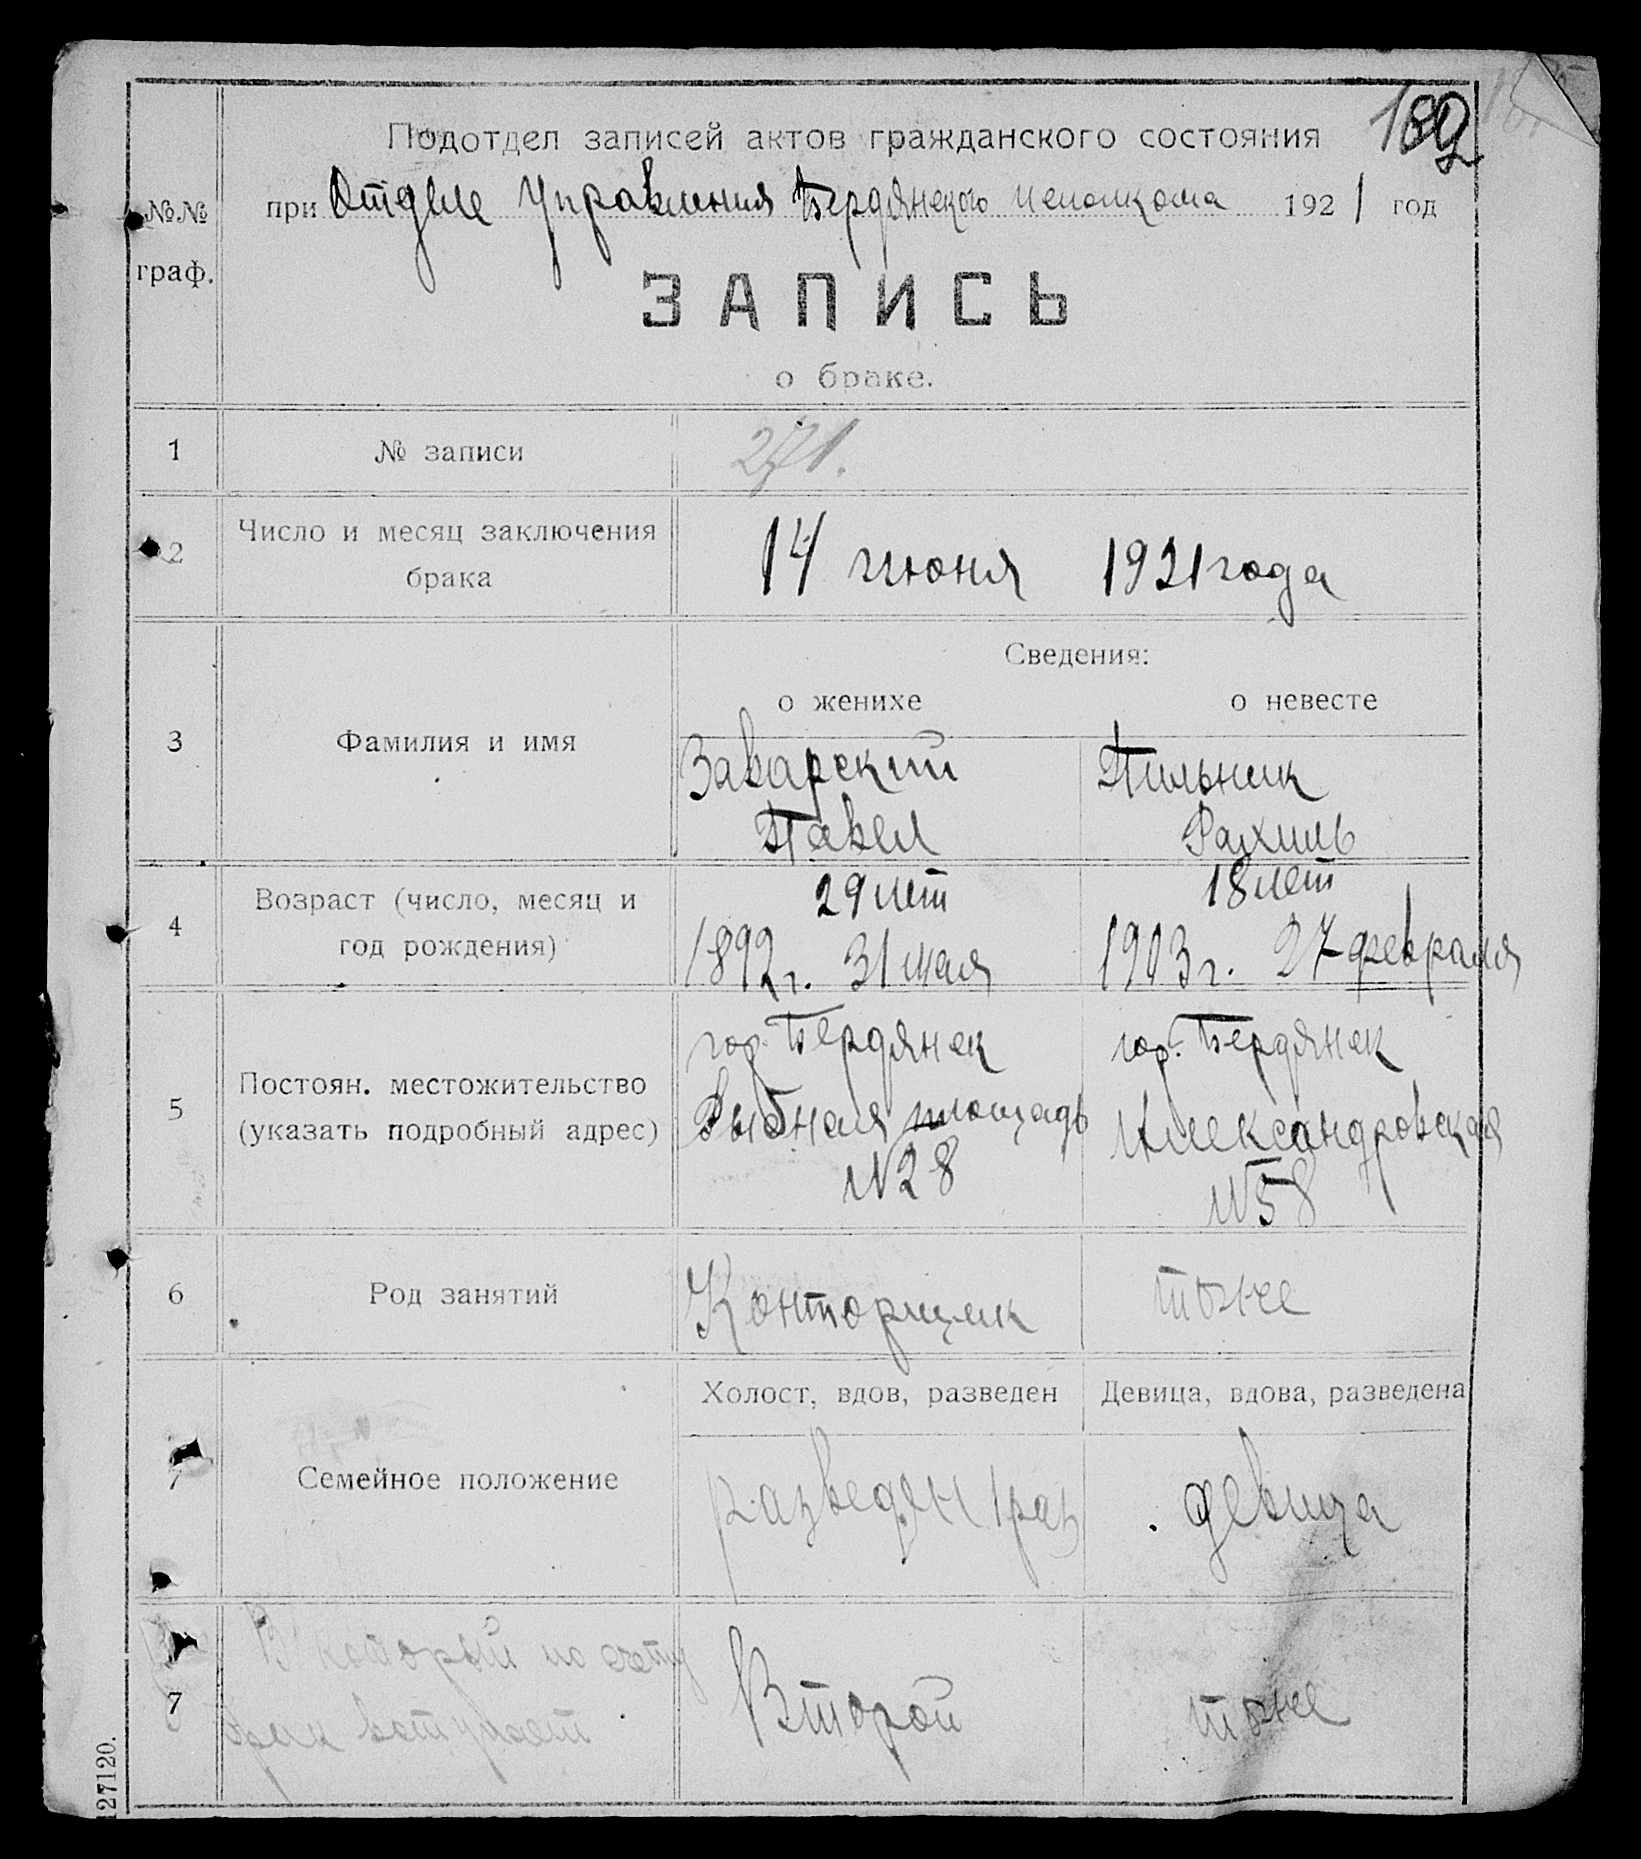 182
Подотдел записей актов гражданского состояния
при Отделе Управления Бердянского исполкома 1921 год
№№
граф.
ЗАПИСЬ
о браке.
1 № записи 271.
2 Число и месяц заключения
брака
14 июня 1921 года
Сведения:
о женихе о невесте
3 Фамилия и имя
Заварский Пильник
Павел Рахиль
4 Возраст (число, месяц и
год рождения)
29 лет 18 лет
1892 г. 31 мая 1903 г. 27 февраля
5 Постоян. местожительство
(указать подробный адрес)
гор. Бердянск гор. Бердянск
Рыбная площадь Александровская
№28 №58
6 Род занятий Конторщик тоже
Холост, вдов, разведен Девица, вдова, разведена
7 Семейное положение разведен 1 раз девица
7 В который по счету
брак вступает
Второй тоже
127120.